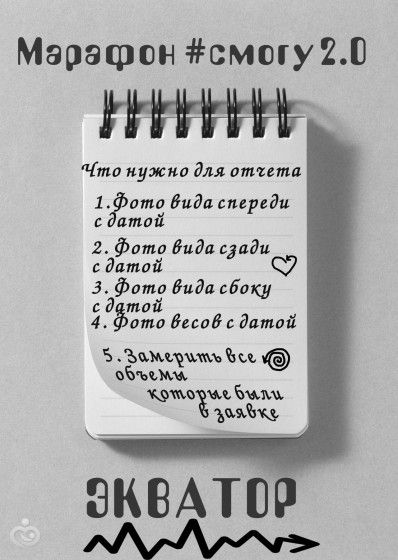 Марафон #смогу 2.0
Что нужно для отчета
1. Фото вида спереди
с датой
2. Фото вида сзади
с датой
3. Фото вида сбоку
с датой
4. Фото весов с датой
5. Замерить все
объемы
которые были
в заявке
ЭКВАТОР